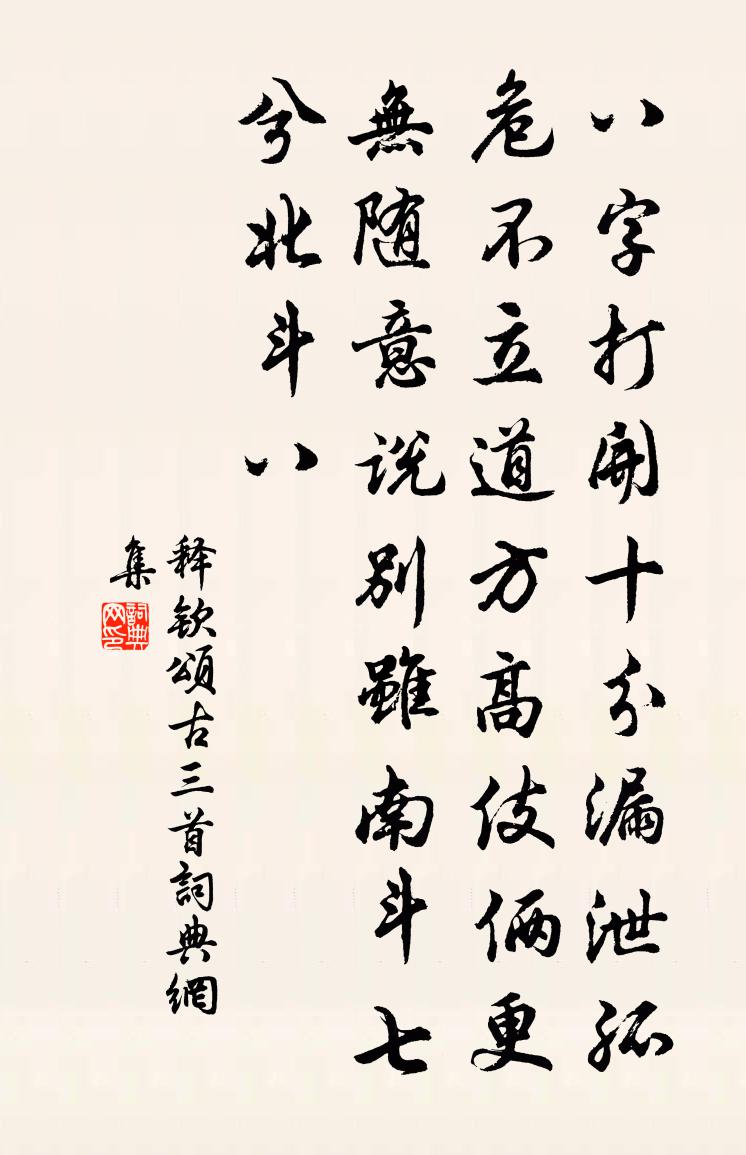 八字打開十分漏泄孤
危不立道方高伎倆更
無随意説别雖南斗七
兮北斗八
释欽頌古三首詞典網
集
詞典
网印